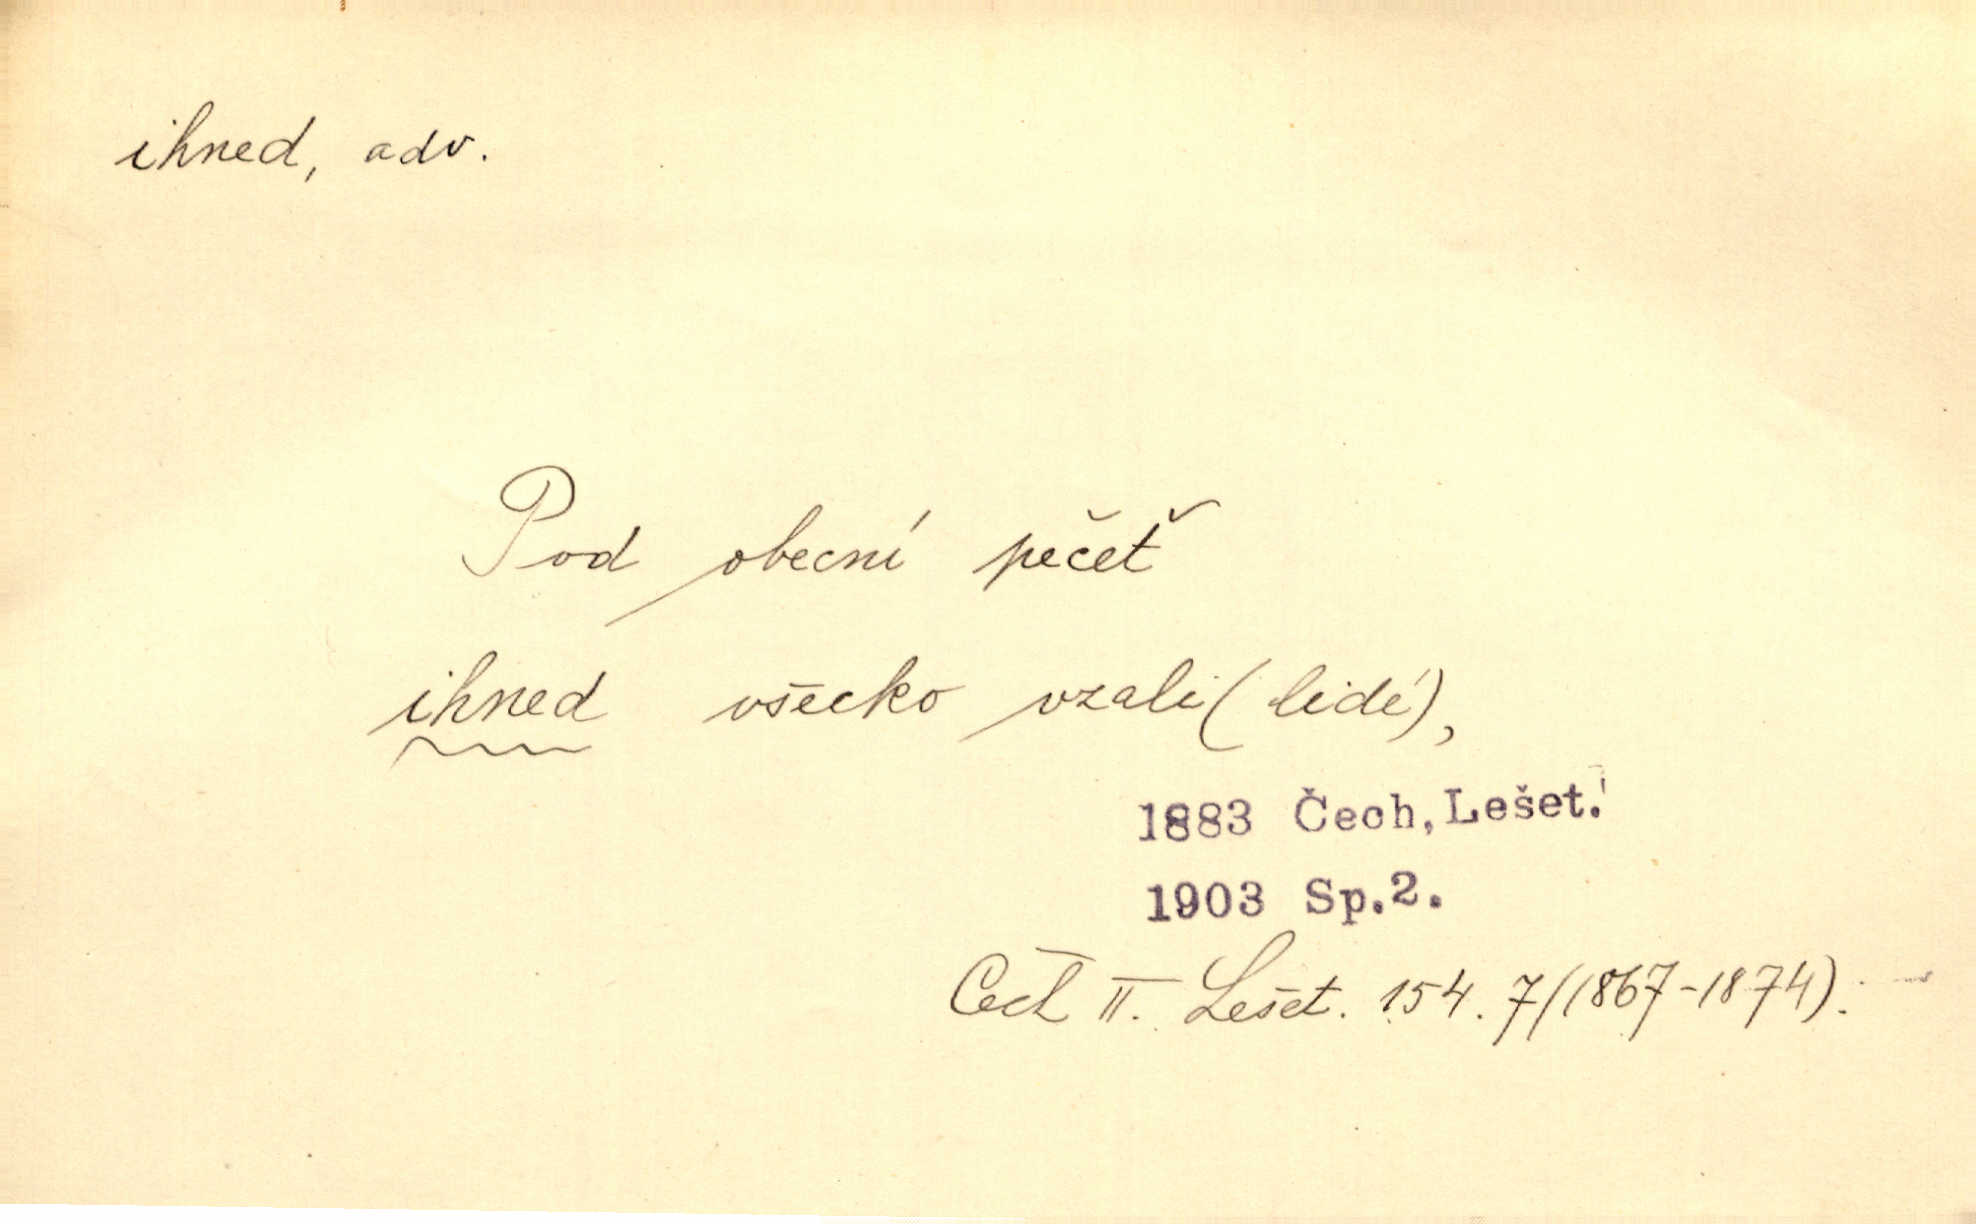 ihned, adv.
Pod obecní pečeť
ihned všecko vzali (lidé),
1883 Čech, Lešet.
1903 Sp.2.
Čech II. Lešet. 154. 7/(1867-1874).